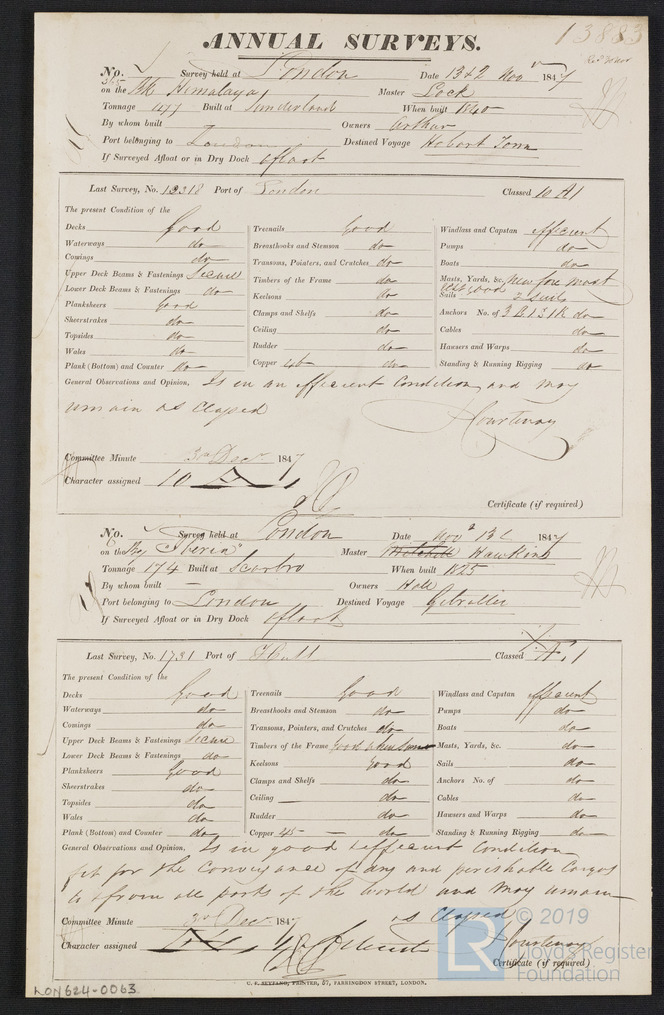 13883
ANNUAL SURVEYS.
No. 365 Survey held at London Date 13 & 2 Novr 1847
on the Bk Himalaya Master Lock
Tonnage 477 Built at Sunderland When built 1840
By whom built Owners Arthur
Port belonging to London Destined Voyage Hobart Town
If Surveyed Afloat or in Dry Dock afloat
Last Survey, No. 13318 Port of London Classed 10 A1
The present Condition of the
Decks Good
Waterways do
Comings do
Upper Deck Beams & Fastenings Secure
Lower Deck Beams & Fastenings do
Planksheers Good
Sheerstrakes do
Topsides do
Wales do
Plank (Bottom) and Counter do
Treenails Good
Breasthooks and Stemson do
Transoms, Pointers, and Crutches do
Timbers of the Frame do
Keelsons do
Clamps and Shelfs do
Ceiling do
Rudder do
Copper 46 do
Windlass and Capstan efficient
Pumps do
Boats do
Masts, Yards, &c. New fore mast
rest good
Sails 2 suits
Anchors No. of 3 B. 1 S 1 K do
Cables do
Hawsers and Warps do
Standing & Running Rigging do
General Observations and Opinion, Is in an efficient Condition, and may
remain as Classed
Courtenay
Committee Minute 3rd Decr 1847
Character assigned 10 A 1
Certificate (if required)
No. Survey held at London Date Novr 13 1847
on the Bg "Iberia" Master Mitchell Hawkins
Tonnage 174 Built at Scarbro When built 1825
By whom built — Owners Hall
Port belonging to London Destined Voyage Gibralter
If Surveyed Afloat or in Dry Dock afloat
Last Survey, No. 1731 Port of Hull Classed Æ 1
The present Condition of the
Decks Good
Waterways do
Comings do
Upper Deck Beams & Fastenings Secure
Lower Deck Beams & Fastenings do
Planksheers Good
Sheerstrakes do
Topsides do
Wales do
Plank (Bottom) and Counter do
Treenails Good
Breasthooks and Stemson do
Transoms, Pointers, and Crutches do
Timbers of the Frame Good
Keelsons Good
Clamps and Shelfs do
Ceiling — do
Rudder do
Copper 45 — do
Windlass and Capstan efficient
Pumps do
Boats do
Masts, Yards, &c. do
Sails do
Anchors No. of do
Cables do
Hawsers and Warps do
Standing & Running Rigging do
General Observations and Opinion, Is in good & efficient Condition
fit for the Conveyance of dry and perishable Cargos
to & from all parts of the World and may remain
as Classed
Committee Minute 3rd Decr 1847
Courtenay
Character assigned
Certificate (if required)
C. F. SEYFANG, PRINTER, 57, FARRINGDON STREET, LONDON.
LON624-0063
© 2019
LR
Lloyd's Register
Foundation